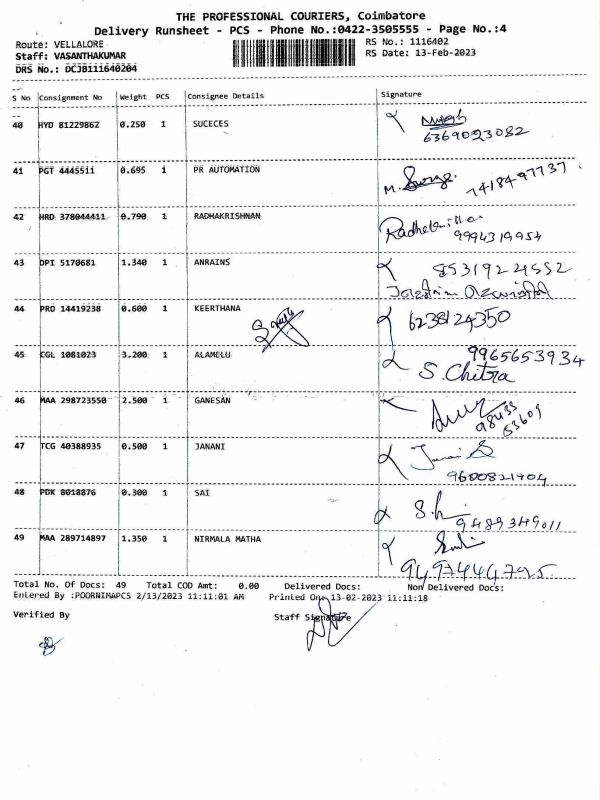 THE PROFESSIONAL COURIERS, Coimbatore
Delivery Runsheet - PCS - Phone No.:0422-3505555 - Page No.:4
Route: VELLALORE RS No.: 1116402
Staff: VASANTHAKUMAR RS Date: 13-Feb-2023
DRS No.: DCJB111640204
S No Consignment No Weight PCS Consignee Details Signature
40 HYD 81229862 0.250 1 SUCECES
6369023082
41 PGT 4445511 0.695 1 PR AUTOMATION
M. 7418497737
42 HRD 378044411 0.790 1 RADHAKRISHNAN
9994319954
43 DPI 5170681 1.340 1 ANRAINS
8531921552
44 PRO 14419238 0.600 1 KEERTHANA
6238124350
45 CGL 1081023 3.200 1 ALAMELU
9965653934
S. Chitra
46 MAA 298723550 2.500 1 GANESAN
98433
53609
47 TCG 40388935 0.500 1 JANANI
9600821904
48 PDK 8018876 0.300 1 SAI
9489349011
49 MAA 289714897 1.350 1 NIRMALA MATHA
9497444795
Total No. Of Docs: 49 Total COD Amt: 0.00 Delivered Docs: Non Delivered Docs:
Entered By :POORNIMAPCS 2/13/2023 11:11:01 AM Printed On: 13-02-2023 11:11:18
Verified By Staff Signature